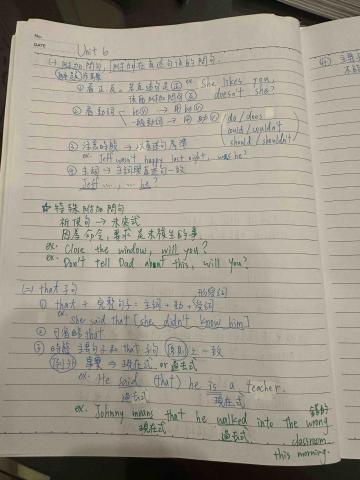 No.
DATE
Unit 6
(一) 附加問句, 附加在直述句後的問句.
① 看正、反. 若直述句是正 ex. She likes you,
後面附加問句 反 doesn't she?
② 看動詞 be V → 用 be V
一般動詞 → 用 助V
do / does
could / wouldn't
should / shouldn't
③ 注意時態 → 以直述句為準
ex. Jeff wasn't happy last night, was he?
④ 主詞 → 主詞與直述句一致
Jeff ..., ... he?
☆ 特殊附加問句
祈使句 → 未來式
因為命令,要求 是未發生的事.
ex. Close the window, will you?
ex. Don't tell Dad about this, will you?
(二) that 子句
① that + 完整句子 = 主詞 + 動 + 受詞
形容詞
ex. She said that [she didn't know him]
② 可省略 that
③ 時態 主要句子和 that 子句 原則上一致
例外 事實 → 現在式 or 過去式
ex. He said (that) he is a teacher.
過去式 現在式
ex. Johnny means that he walked into the wrong
現在式 過去式 classroom
this morning.